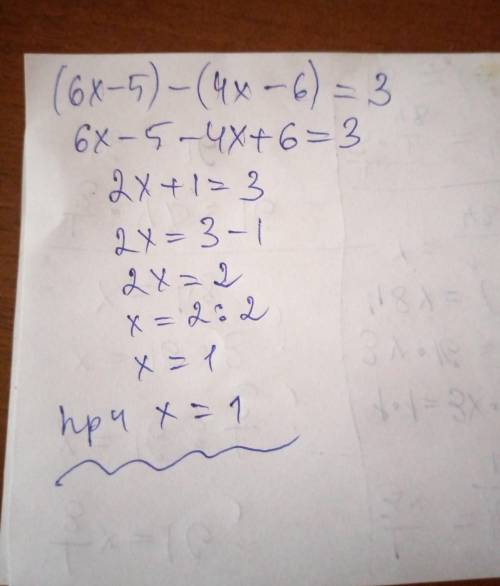 (6x-5)-(4x-6)=3
6x-5-4x+6=3
2x+1=3
2x=3-1
2x=2
x=2:2
x=1
при x=1